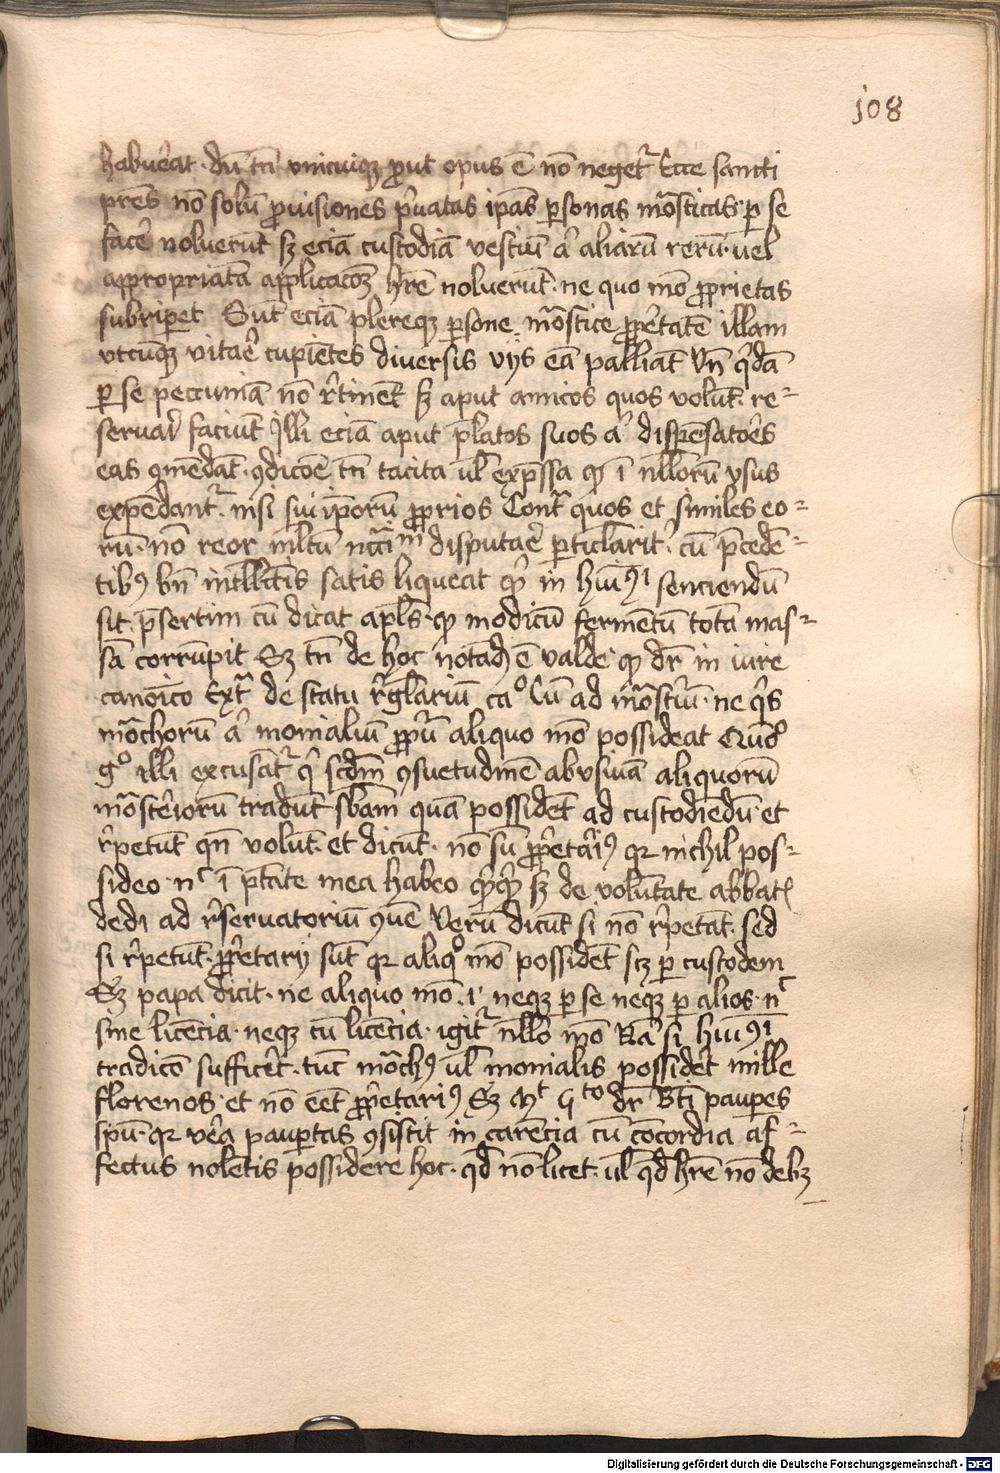 108
habuerat · dū tn̄ vnicuiqꝫ ꝓut opus ē nō neget᷑ Ecce sancti
pr̄es nō solū ꝓuisiones p̱uatas ip̄as ꝑsonas mo̅sticas ꝑ se
facē noluerūt sꝫ eciā custodiā vestiū a᷑ aliarū rerū uel
appropriatā applicacōꝫ hr̄e noluerūt · ne quo mō ꝓprietas
subriperet Sūt eciā plereqꝫ ꝑsone mo̅stice ꝓp̱etatē illam
vtcūqꝫ vitaē cupiētes diuersis vijs eā palliāt Vn̄ q̄dā
ꝑ se peccuniā nō r̄tinēt sꝫ aput amicos quos volūt · re-
seruar̄ faciūt Illi eciā aput p̄latos suos a᷑ dispēsatoēs
eas ꝯmēdāt · ꝯdicōe tn̄ tacita ul̄ exp̄ssa ꝙ ī nll̄orū vsus
expēdant᷑ · nisi sui ip̄orū ꝓprios Cont᷑ quos et similes eo-
rū · nō reor mltū disputaē ꝑticl̄arit᷑ · cū p̄cedē-
tibꝰ bn̄ intll̄ctis satis liqueat in huiꝰ senciendū
sit · p̄sertim cū dicat apl̄s · ꝙ modicū fermētū totā mas-
sā corrūpit Sꝫ tn̄ de hoc notād ē valde ꝙ dr̄ in iure
canoīco Ext᷑ de statu r̄gl̄ariū ca° Cū ad mo̅st̄iū · ne q̄s
mo̅chorū a᷑ monialiū ꝓp̱ū aliquo mō possideat Quō
g° illi excusāt᷑ q̄ scd̄m ꝯsuetudinē abusiuā aliquorū
mo̅steriorū tradūt sb̄am quā possidēt ad custodiēdū et
r̄petūt qn̄ volūt · et dicūt · nō sū ꝓp̱etariꝰ qr nichil pos-
sideo · nᶜ ī ptāte mea habeo sꝫ de volūtate abbat
dedi ad r̄seruatoriū ꝯuē Verū dicūt si nō r̄petāt · sed
si r̄petūt · ꝓp̱etarij sūt qr aliqᵒ mō possidēt scꝫ ꝑ custodem
Sꝫ papa dicit · ne aliquo mō · i · neqꝫ ꝑ se neqꝫ ꝑ alios · nᶜ
sine licēcia · neqꝫ cū licēcia · igit᷑ nll̄o mō Na᷑ si huiꝰ
tradicō sufficeēt · tūc mo̅chꝰ ul̄ monialis possidēt mille
florenos · et nō eēt ꝓp̱etariꝰ Sꝫ Mᵗ qᵗᵒ dr̄ Bt̄i pauꝑes
spū · qr vēa pauꝑtas ꝯsistit in carēcia cū cōcordia af-
fectus nolētis possidere hoc · qd̄ nō licet · ul̄ qd̄ hr̄e nō debꝫ
Digitalisierung gefördert durch die Deutsche Forschungsgemeinschaft - DFG